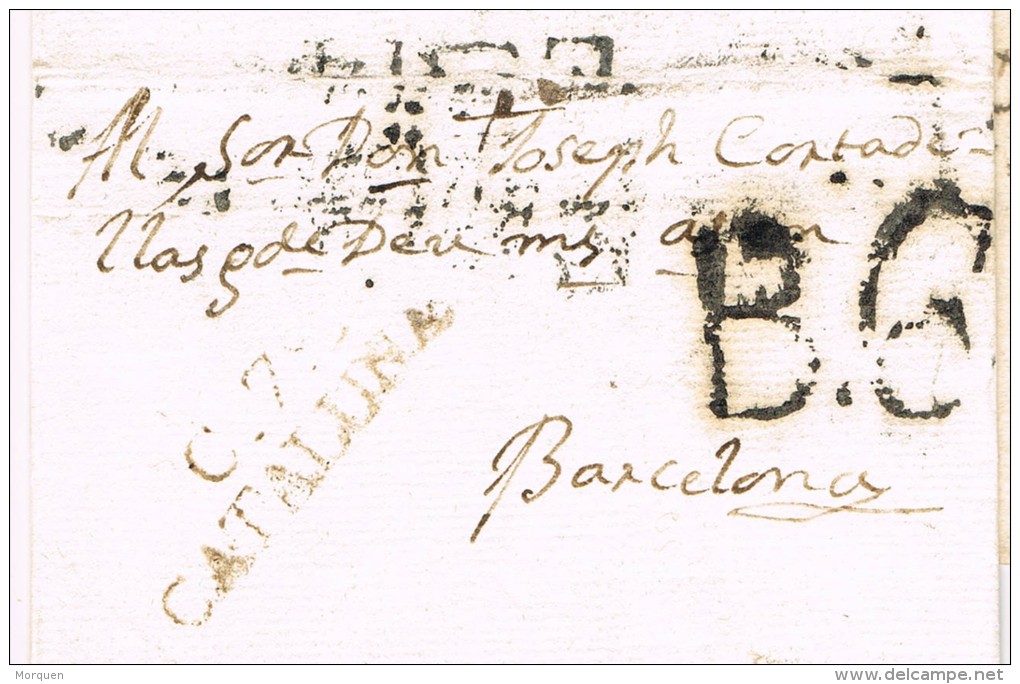 Al Sor Don Joseph Cortade=
llas gde Deu ms as en
B.G
C. 7.
CATALUNA
Barcelona
Morquen
delcampe.net